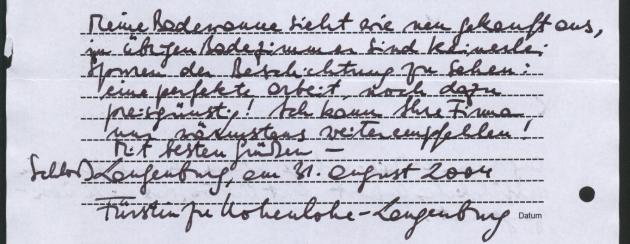 Meine Badewanne sieht wie neu gekauft aus,
im übrigen Badezimmer sind keinerlei
Spuren der Beschichtung zu sehen:
eine perfekte Arbeit, noch dazu
preisgünstig! Ich kann Ihre Firma
nur wärmstens weiterempfehlen!
Mit besten Grüßen –
Schloß Langenburg, am 31. August 2004
Fürstin zu Hohenlohe-Langenburg Datum